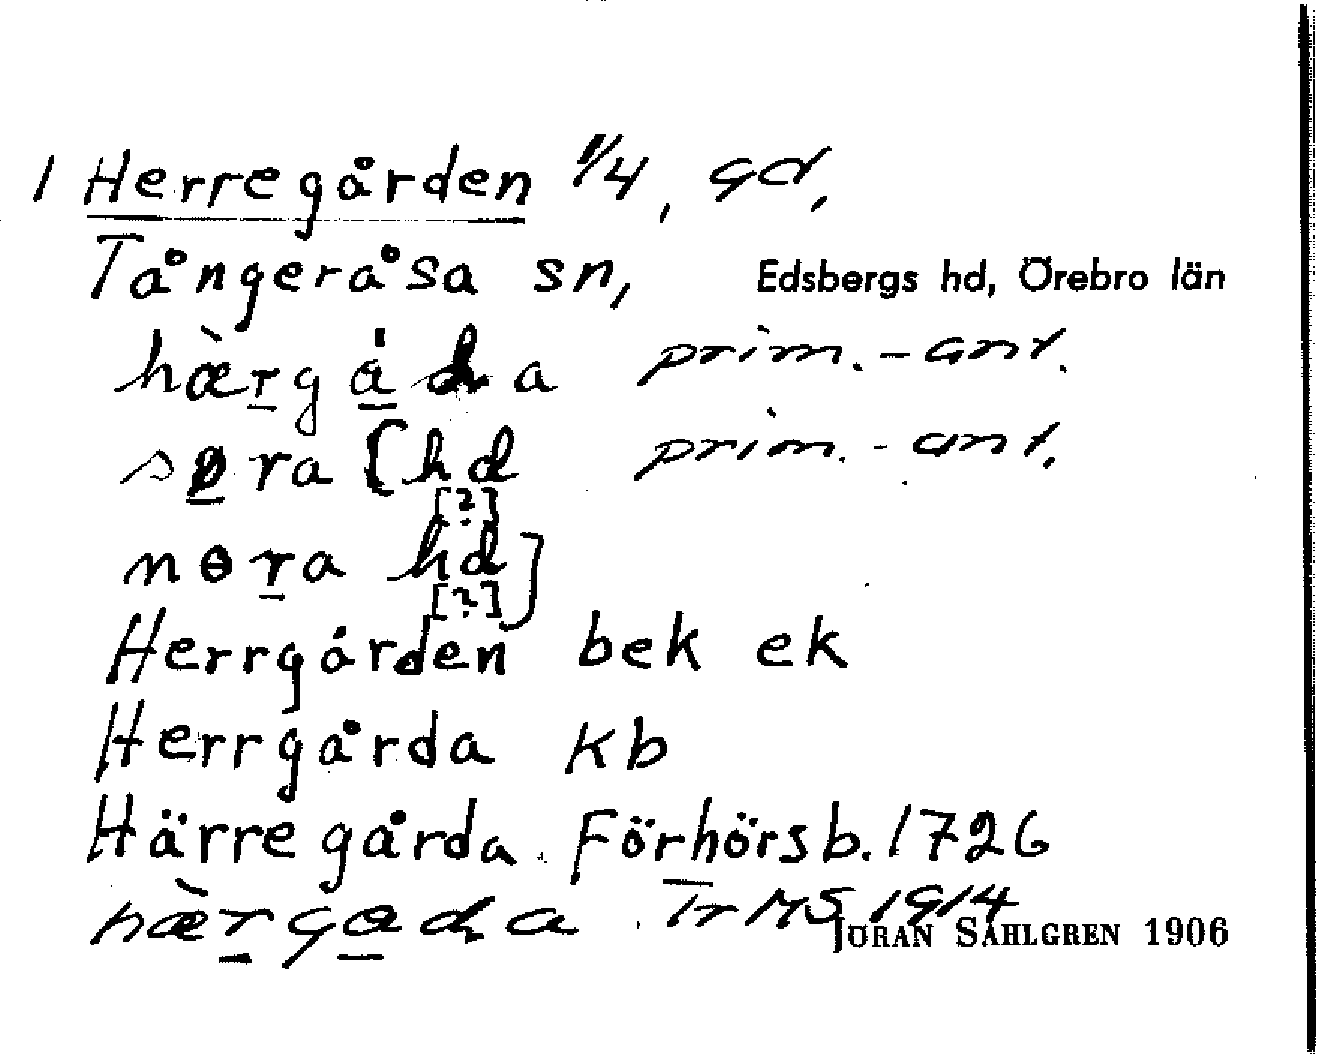 1 Herregården 1/4, gd,
Tångeråsa sn, Edsbergs hd, Örebro län
hæ̀rgåda prim.-ant.
søra [hd prim.-ant.
[?]
nɵra hd]
[?]
Herrgården bek ek
Herrgårda kb
Härregårda. Förhörsb. 1726
hæ̀rgɵda. Tr MS 1914
JÖRAN SAHLGREN 1906